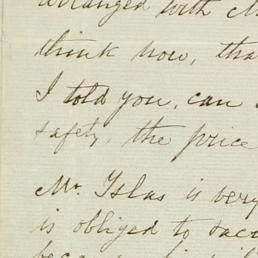 arranged with M
think now, tha
I told you, can
safety, the price
Mr. Islas is very
is obliged to sacr